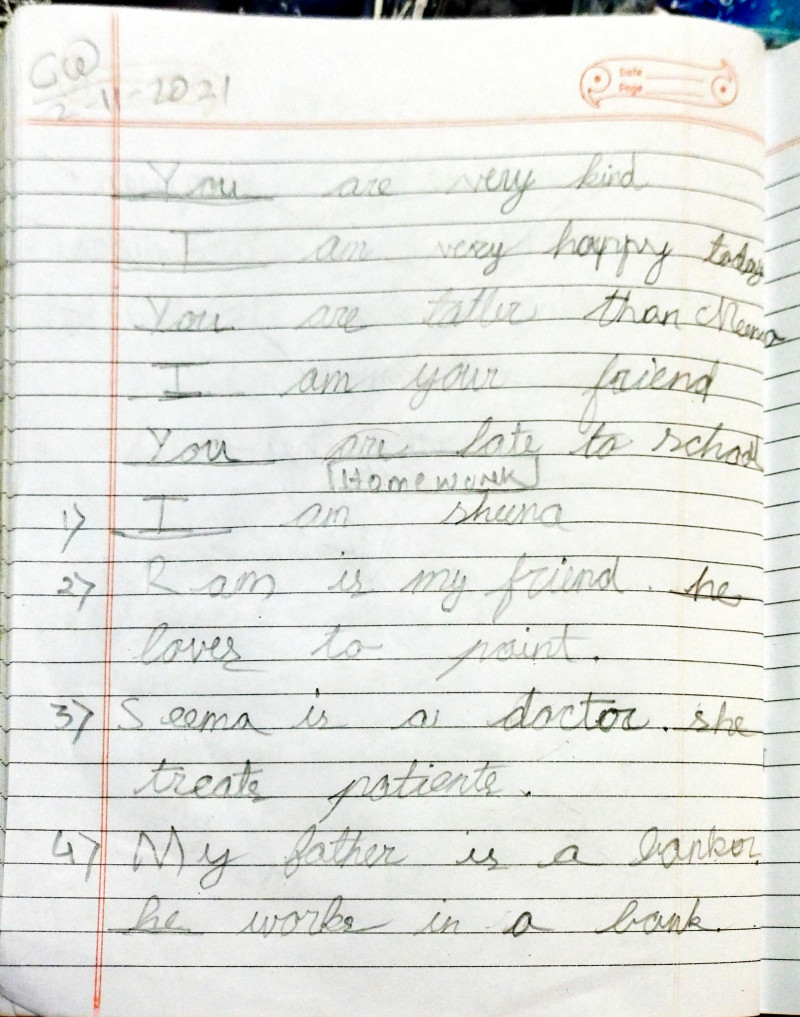 CW
2-11-2021
Date
Page
You are very kind
I am very happy today
You are taller than Meena
I am your friend
You are late to school
Homework
1) I am
2) Ram is my friend. he
loves to paint.
3) Seema is a doctor. she
treats patients.
4) My father is a banker.
he works in a bank.